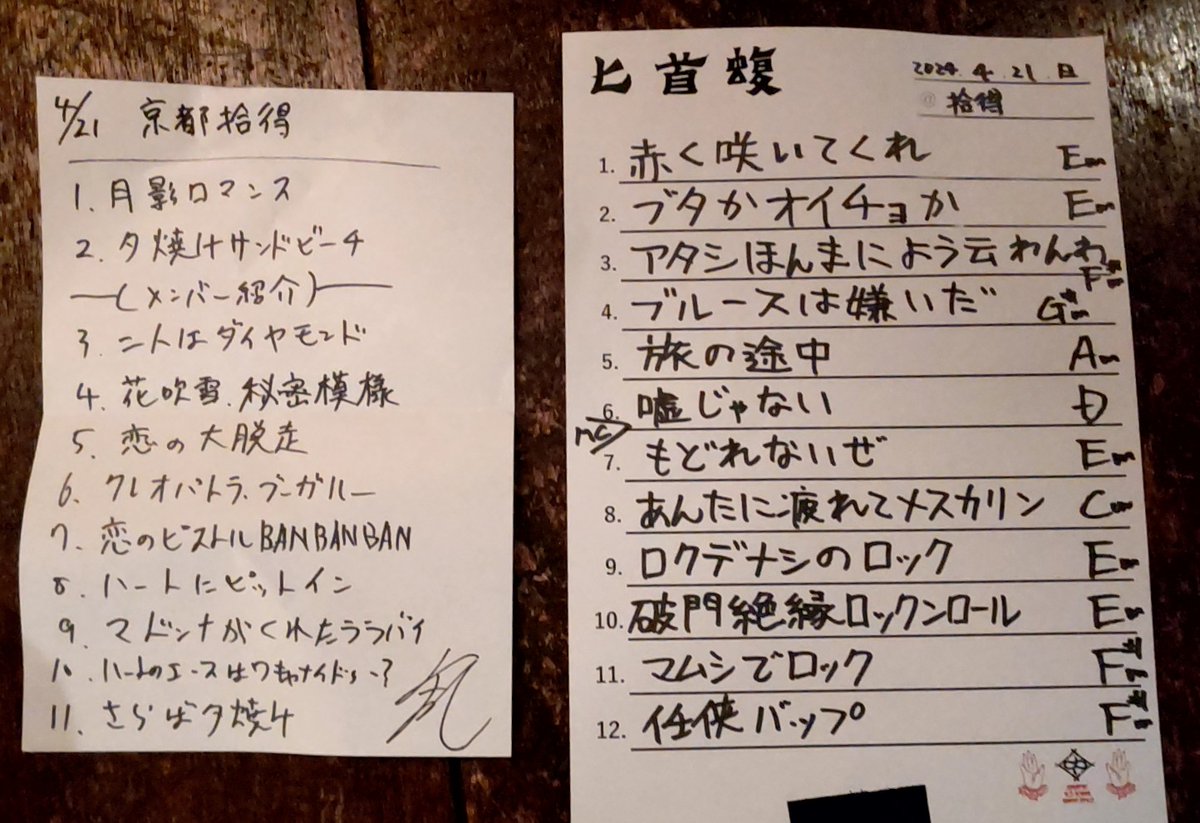 4/21 京都拾得
1. 月影ロマンス
2. 夕焼けサンドビーチ
(メンバー紹介)
3. 二人はダイヤモンド
4. 花吹雪.秘密模様
5. 恋の大脱走
6. クレオパトラ.ブーガルー
7. 恋のピストルBANBANBAN
8. ハートにピットイン
9. マドンナがくれたララバイ
10. ハートのエースは
11. さらば夕焼け
匕首蝮
2024.4.21.日
@ 拾得
1. 赤く咲いてくれ Em
2. ブタかオイチョか Em
3. アタシほんまによう云わんわ F#m
4. ブルースは嫌いだ G#m
5. 旅の途中 Am
6. 嘘じゃない D
MC
7. もどれないぜ Em
8. あんたに疲れてメスカリン Cm
9. ロクデナシのロック Em
10. 破門絶縁ロックンロール Em
11. マムシでロック F#m
12. 任侠バップ F#m